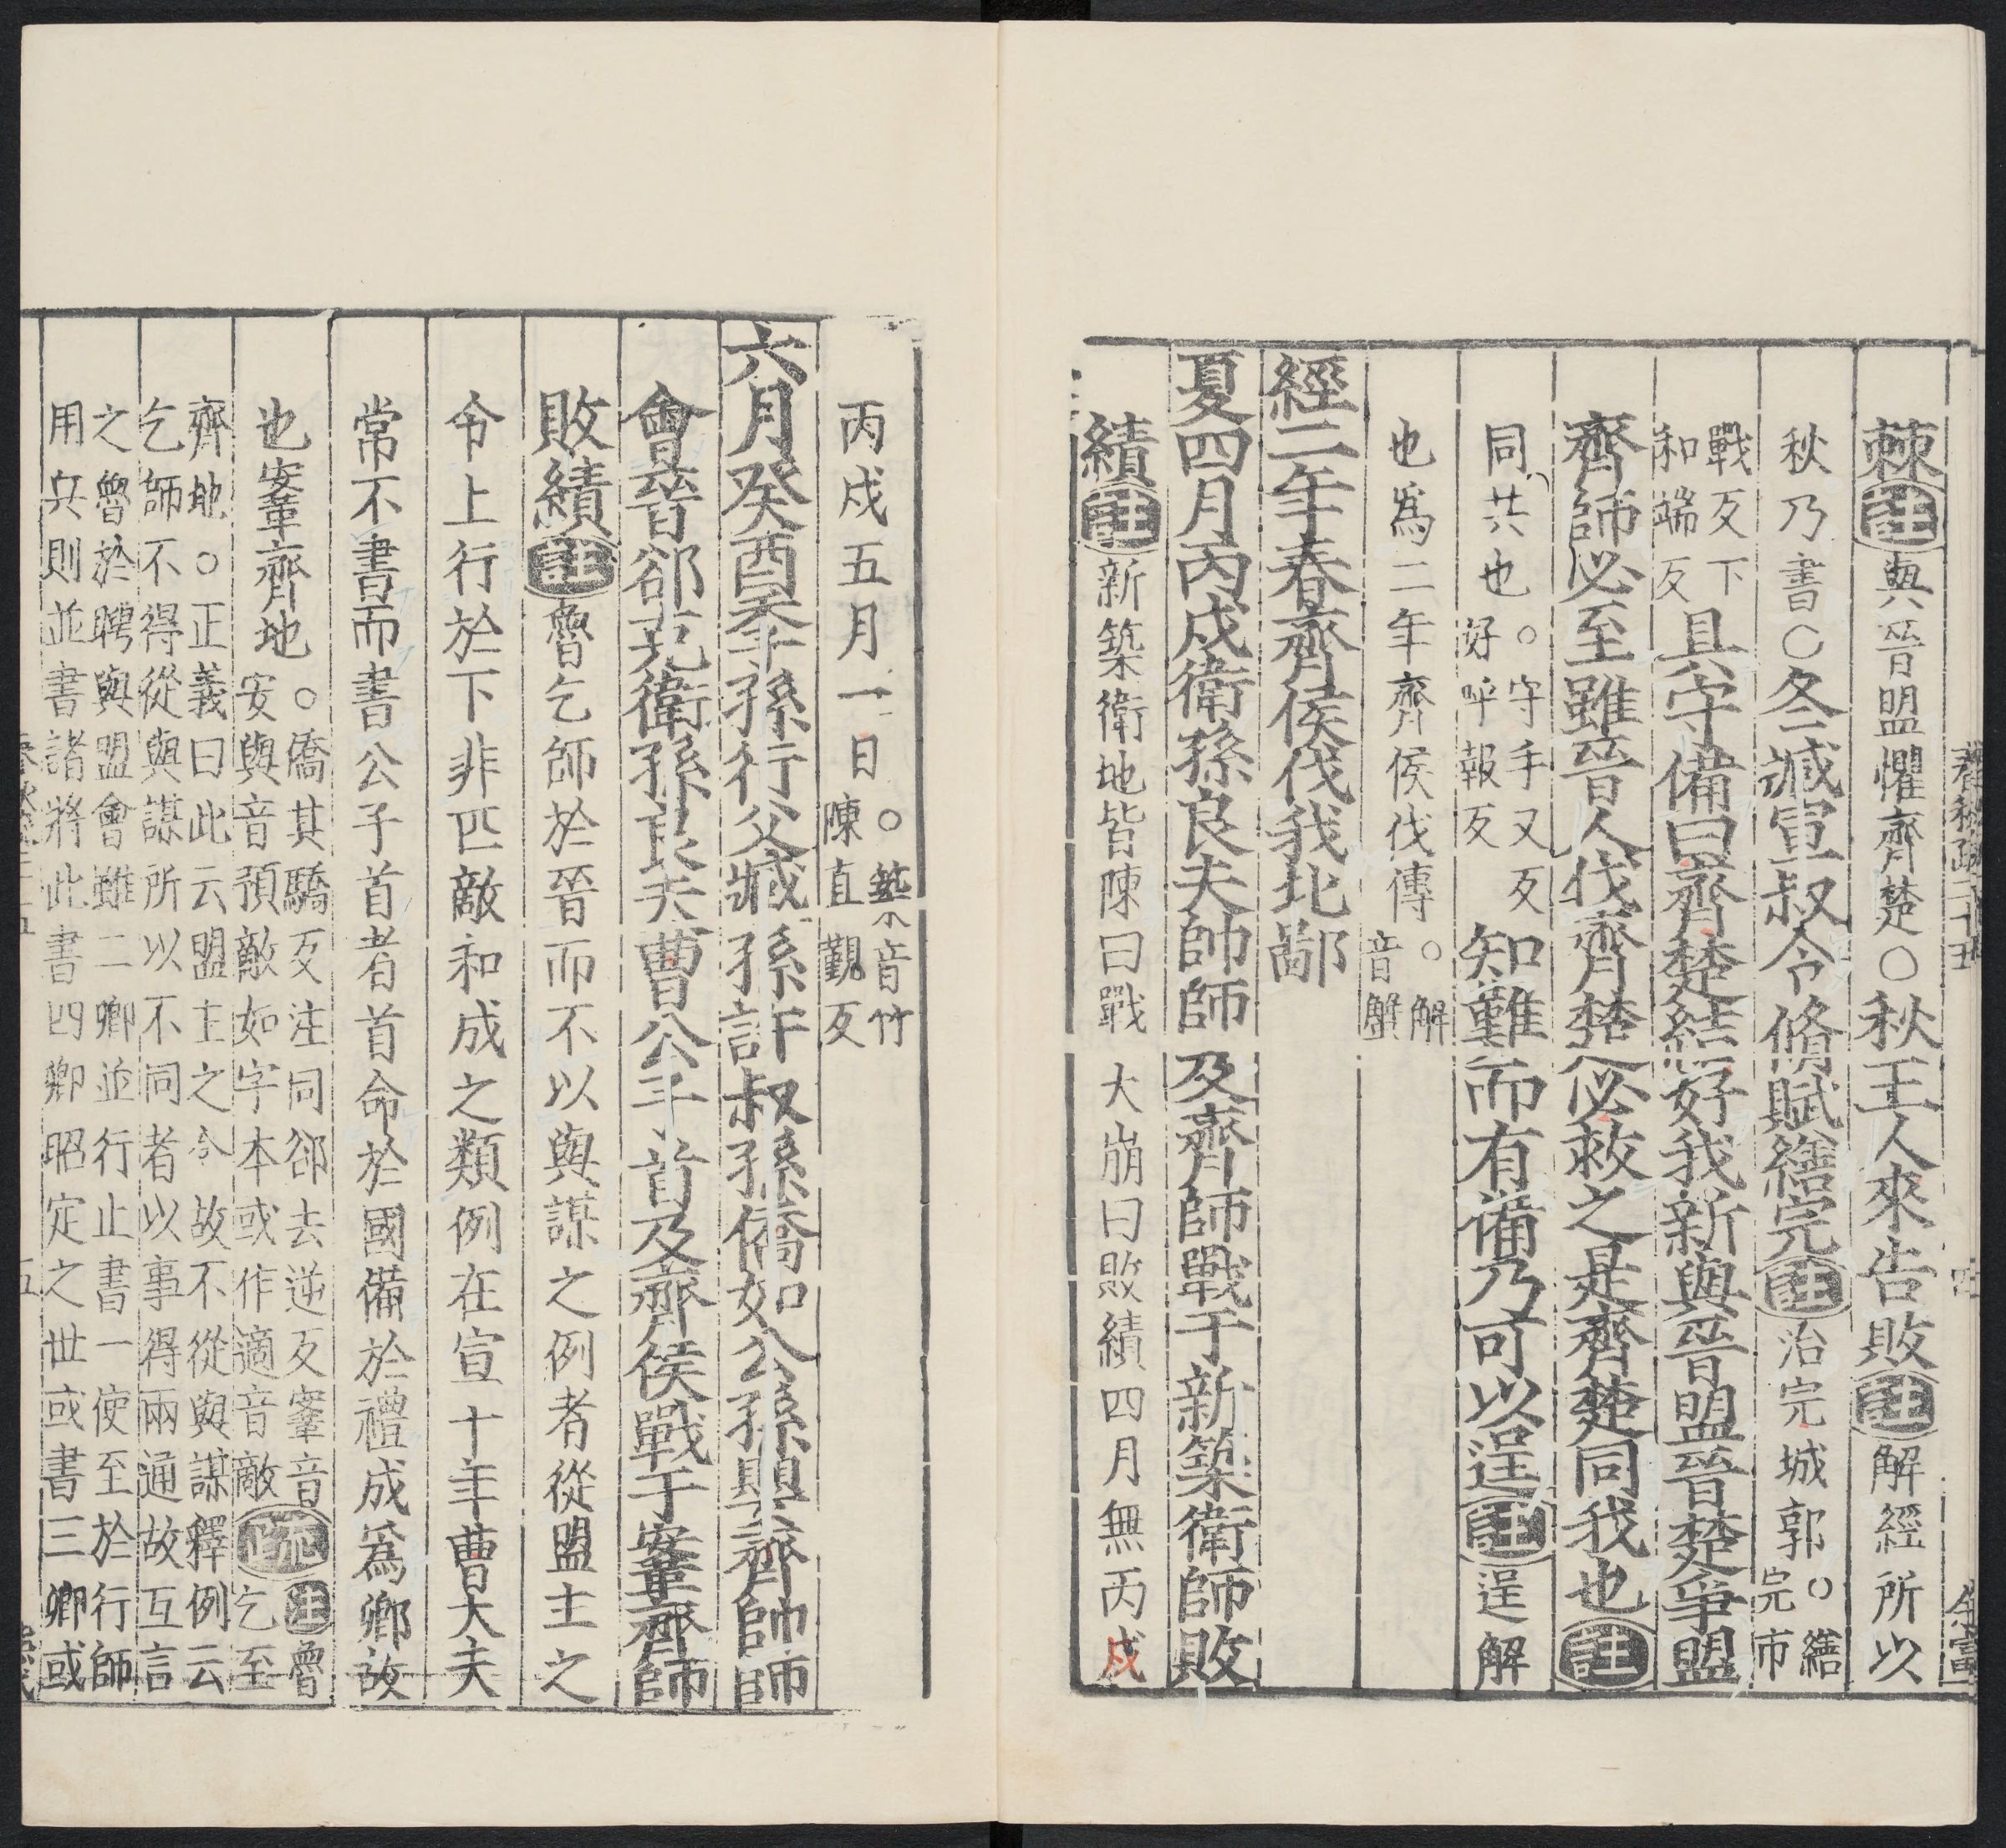 棘註與晉盟懼齊楚○秋王人來告敗註解經所以
秋乃書○冬臧宣叔令脩賦繕完註治完城郭○繕
完市
戰反下
和端反
具守備曰齊楚結好我新與晉盟晉楚爭盟
齊師必至雖晉人伐齊楚必救之是齊楚同我也註
同共也○守手又反
好呼報反
知難而有備乃可以逞註逞解
也爲二年齊侯伐傳○解
音蟹
經二年春齊侯伐我北鄙
夏四月丙戌衛孫良夫帥師及齊師戰于新築衛師敗
績註新築衛地皆陳曰戰大崩曰敗績四月無丙戌
丙戌五月一日○築音竹
陳直覲反
六月癸酉季孫行父臧孫許叔孫僑如公孫嬰齊帥師
會晉郤克衛孫良夫曹公子首及齊侯戰于鞌齊師
敗績註魯乞師於晉而不以與謀之例者從盟主之
令上行於下非匹敵和成之類例在宣十年曹大夫
常不書而書公子首者首命於國備於禮成爲卿故
也鞌齊地○僑其驕反注同郤去逆反鞌音
安與音預敵如字本或作適音敵疏註魯
乞至
齊地○正義曰此云盟主之令故不從與謀釋例云
乞師不得從與謀所以不同者以事得兩通故互言
之魯於聘與盟會雖二卿並行止書一使至於行師
用兵則並書諸將此書四卿昭定之世或書三卿或